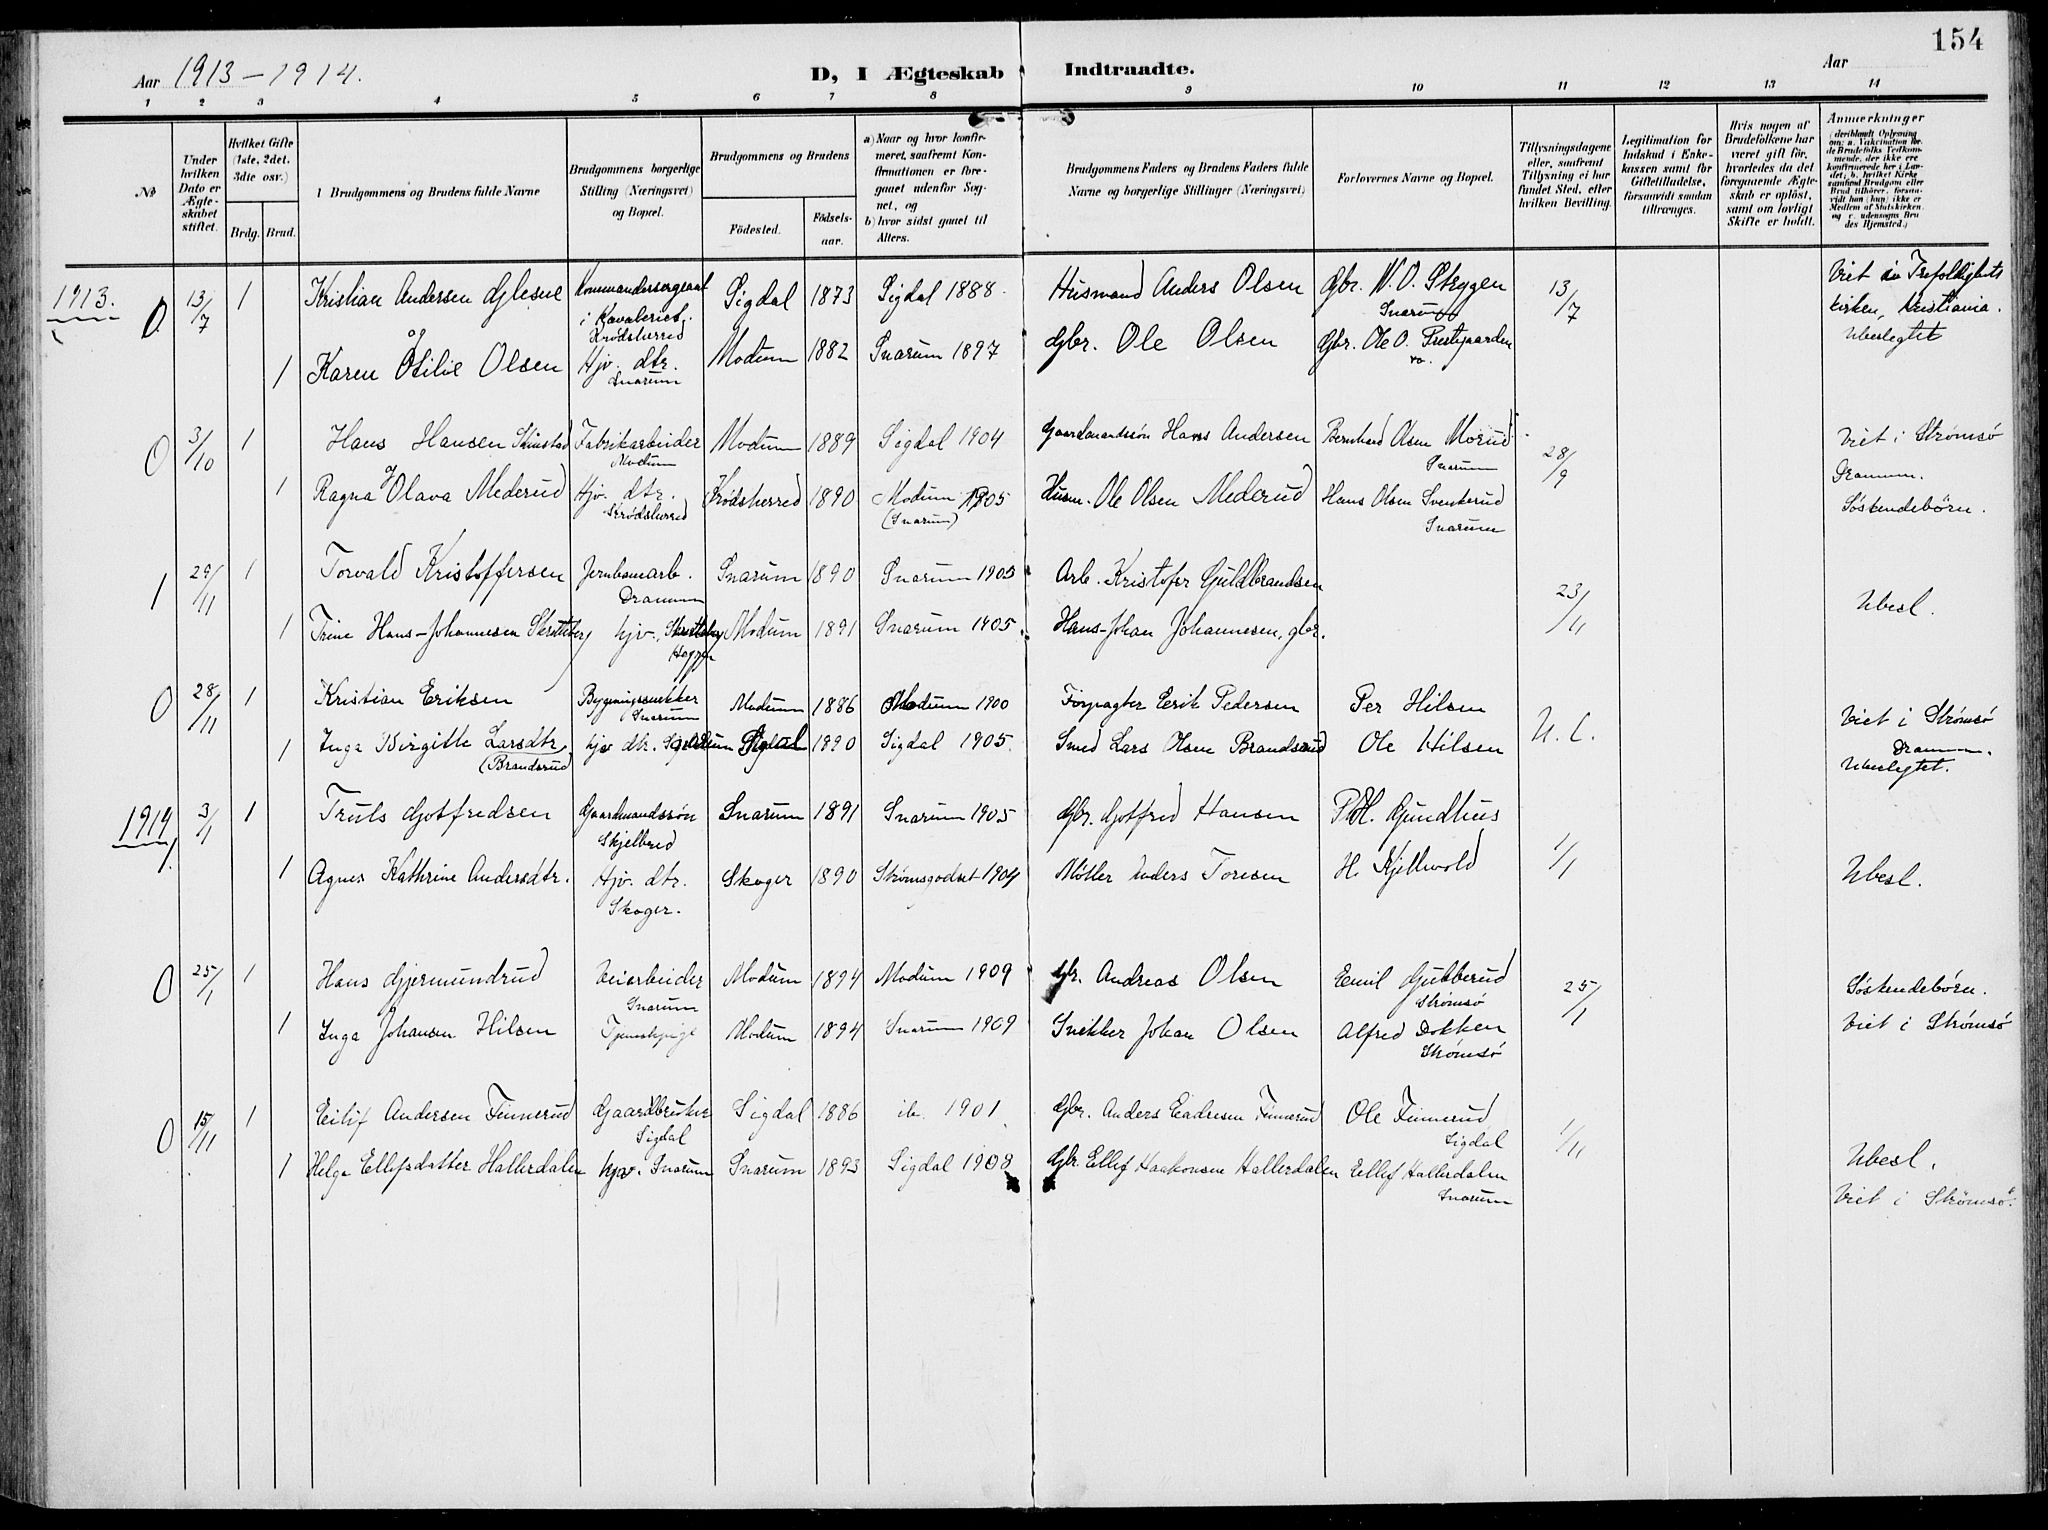 154
Aar 1913-1914.
D, I Ægteskab Indtraadte.
Aar
1 2 3 4 5 6 7 8 9 10 11 12 13 14
No
Under hvilken Dato er Ægteskabet stiftet.
Hvilket Gifte (1ste, 2det, 3dte osv.)
Brdg. Brud.
1 Brudgommens og Brudens fulde Navne
Brudgommens borgerlige Stilling (Næringsvei) og Bopæl.
Brudgommens og Brudens
Födested.
Födselsaar.
a) Naar og hvor konfirmeret, saafremt Konfirmationen er foregaaet udenfor Sognet, og
b) hvor sidst gaaet til Alters.
Brudgommens Faders og Brudens Faders fulde Navne og borgerlige Stillinger (Næringsvei)
Forlovernes Navne og Bopæl.
Tillysningsdagene eller, saafremt Tillysning ei har fundet Sted, efter hvilken Bevilling.
Legitimation for Indskud i Enkekassen samt for Giftetilladelse, forsaavidt saadan tiltrænges.
Hvis nogen af Brudefolkene har været gift för, hvorledes da det foregaaende Ægteskab er oplöst, samt om lovligt Skifte er holdt.
Anmærkninger (deriblandt Oplysning om: a. Vaksination for de Brudefolks Vedkommende, der ikke ere konfirmerede her i Landet, b. hvilket Kirkesamfund Brudgom eller Brud tilhörer, forsaavidt han (hun) ikke er Medlem af Statskirken, og c. udensogns Brudes Hjemsted.)
1913.
0 13/7 1 Kristian Andersen Glesne Kommandersergeant i Kavaleriet. Krødsherred Sigdal 1873 Sigdal 1888. Husmand Anders Olsen Gbr. N. O. Skygen Snarum 13/7 Viet i Trefoldigheds
kirken, Kristiania.
og
1 Karen Otilie Olsen Hjv. dtr. Snarum Modum 1882 Snarum 1897 Gbr. Ole Olsen Gbr. Ole O. Prestgaarden Ubeslegtet
0 3/10 1 Hans Hansen Skinstad Fabrikarbeider Modum Modum 1889 Sigdal 1904 Gaardmandssøn Hans Andersen Bernhard Olsen Morud Snarum 28/9 Viet i Strømsø
Dramm.
1 Ragna Olava Mederud Hjv. dtr. Krødsherred Krødsherred 1890 Modum 1905 (Snarum) Husm. Ole Olsen Mederud Hans Olsen Svenkerud Snarum Søskendebörn.
1 29/11 1 Torvald Kristoffersen Jernbanearb. Dramm Snarum 1890 Snarum 1905 Arb. Kristofer Guldbrandsen 23/11 Ubesl.
1 Trine Hans-Johannesen hjv. Modum 1891 Snarum 1905. Hans-Johan Johannesen, gbr.
0 28/11 1 Kristian Eriksen Bygningssnekker Snarum Modum 1886 Modum 1900 Forpagter Erik Pedersen Per Hilsen U. l. Viet i Strømsø
Dramm.
1 Inga Birgitte Larsdtr. (Brandsrud hjv. dtr. Sigdal 1890 Sigdal 1905. Smed Lars Olsen Brandsrud Ole Hilsen Ubeslegtet.
1914 3/1 1 Truls Gotfredsen Gaardmandssøn Skjelbred Snarum 1891 Snarum 1905 Gbr. Gotfred Hansen Gundhus 1/1 Ubesl.
1 Agnes Kathrine Andersdtr. Hjv. dtr. Skoger. Skoger 1890 Strømsgodset 1904 Møller Anders Toresen H. Kjellvold
0 25/1 1 Hans Gjermundrud Veiarbeider Snarum Modum 1894 Modum 1909 Gbr. Andreas Olsen Emil Gubberud Strømsø 25/1 Søskendebörn.
1 Inga Johansen Hilsen Tjenestepige Modum 1894 Snarum 1909 Snikker Johan Olsen Alfred Dokken Strømsø Viet i Strømsø
0 15/11 1 Eilif Andersen Finnerud Gaardbruker Sigdal Sigdal 1886 ib. 1901. Gbr. Anders Endresen Finnerud Ole Finnerud Sigdal 1/11
1 Helga Ellefsdatter Hallerdalen hjv. Snarum Snarum 1893 Sigdal 1908 Gbr. Ellef Haakonsen Hallerdalen Ellef Hallerdalen Snarum Ubesl.
Viet i Strømsø.